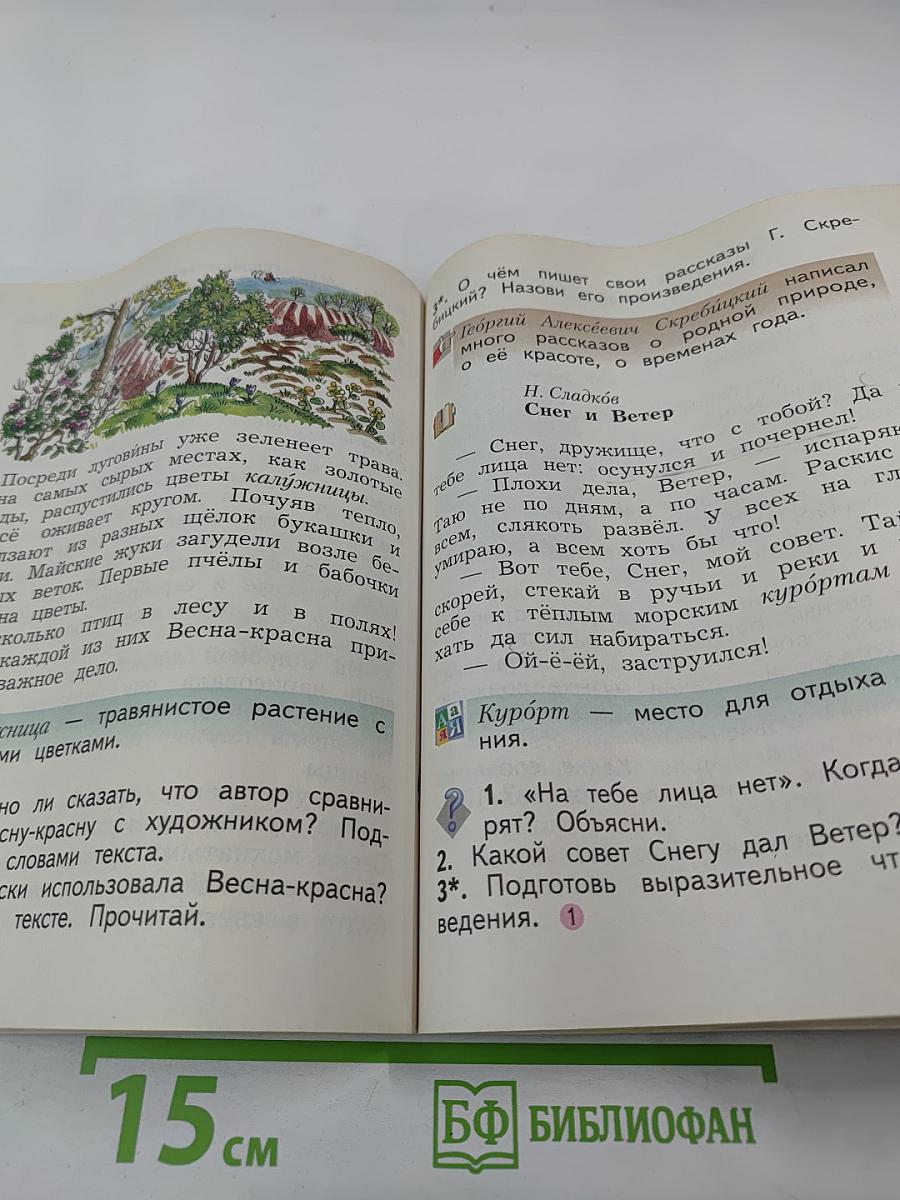 Посреди луговины уже зеленеет трава.
на самых сырых местах, как золотые
ды, распустились цветы калу́жницы.
сё оживает кругом. Почуяв тепло,
лзают из разных щёлок букашки и
и. Майские жуки загудели возле бе-
ых веток. Первые пчёлы и бабочки
на цветы.
сколько птиц в лесу и в полях!
каждой из них Весна-красна при-
важное дело.
сница — травянистое растение с
ми цветками.
но ли сказать, что автор сравни-
сну-красну с художником? Под-
словами текста.
ски использовала Весна-красна?
тексте. Прочитай.
3*. О чём пишет свои рассказы Г. Скре-
бицкий? Назови его произведения.
Гео́ргий Алексе́евич Скреби́цкий написал
много рассказов о родной природе,
о её красоте, о временах года.
Н. Сладко́в
Снег и Ветер
— Снег, дружище, что с тобой? Да
тебе лица нет: осунулся и почернел!
— Плохи дела, Ветер, — испаряю
Таю не по дням, а по часам. Раскис
всем, слякоть развёл. У всех на гл
умираю, а всем хоть бы что!
— Вот тебе, Снег, мой совет. Тай
скорей, стекай в ручьи и реки и
себе к тёплым морским куро́ртам
хать да сил набираться.
— Ой-ё-ёй, заструился!
Аа
яЯ
Куро́рт — место для отдыха
ния.
1. «На тебе лица нет». Когда
рят? Объясни.
2. Какой совет Снегу дал Ветер?
3*. Подготовь выразительное чт
ведения. 1
15 см
БФ БИБЛИОФАН